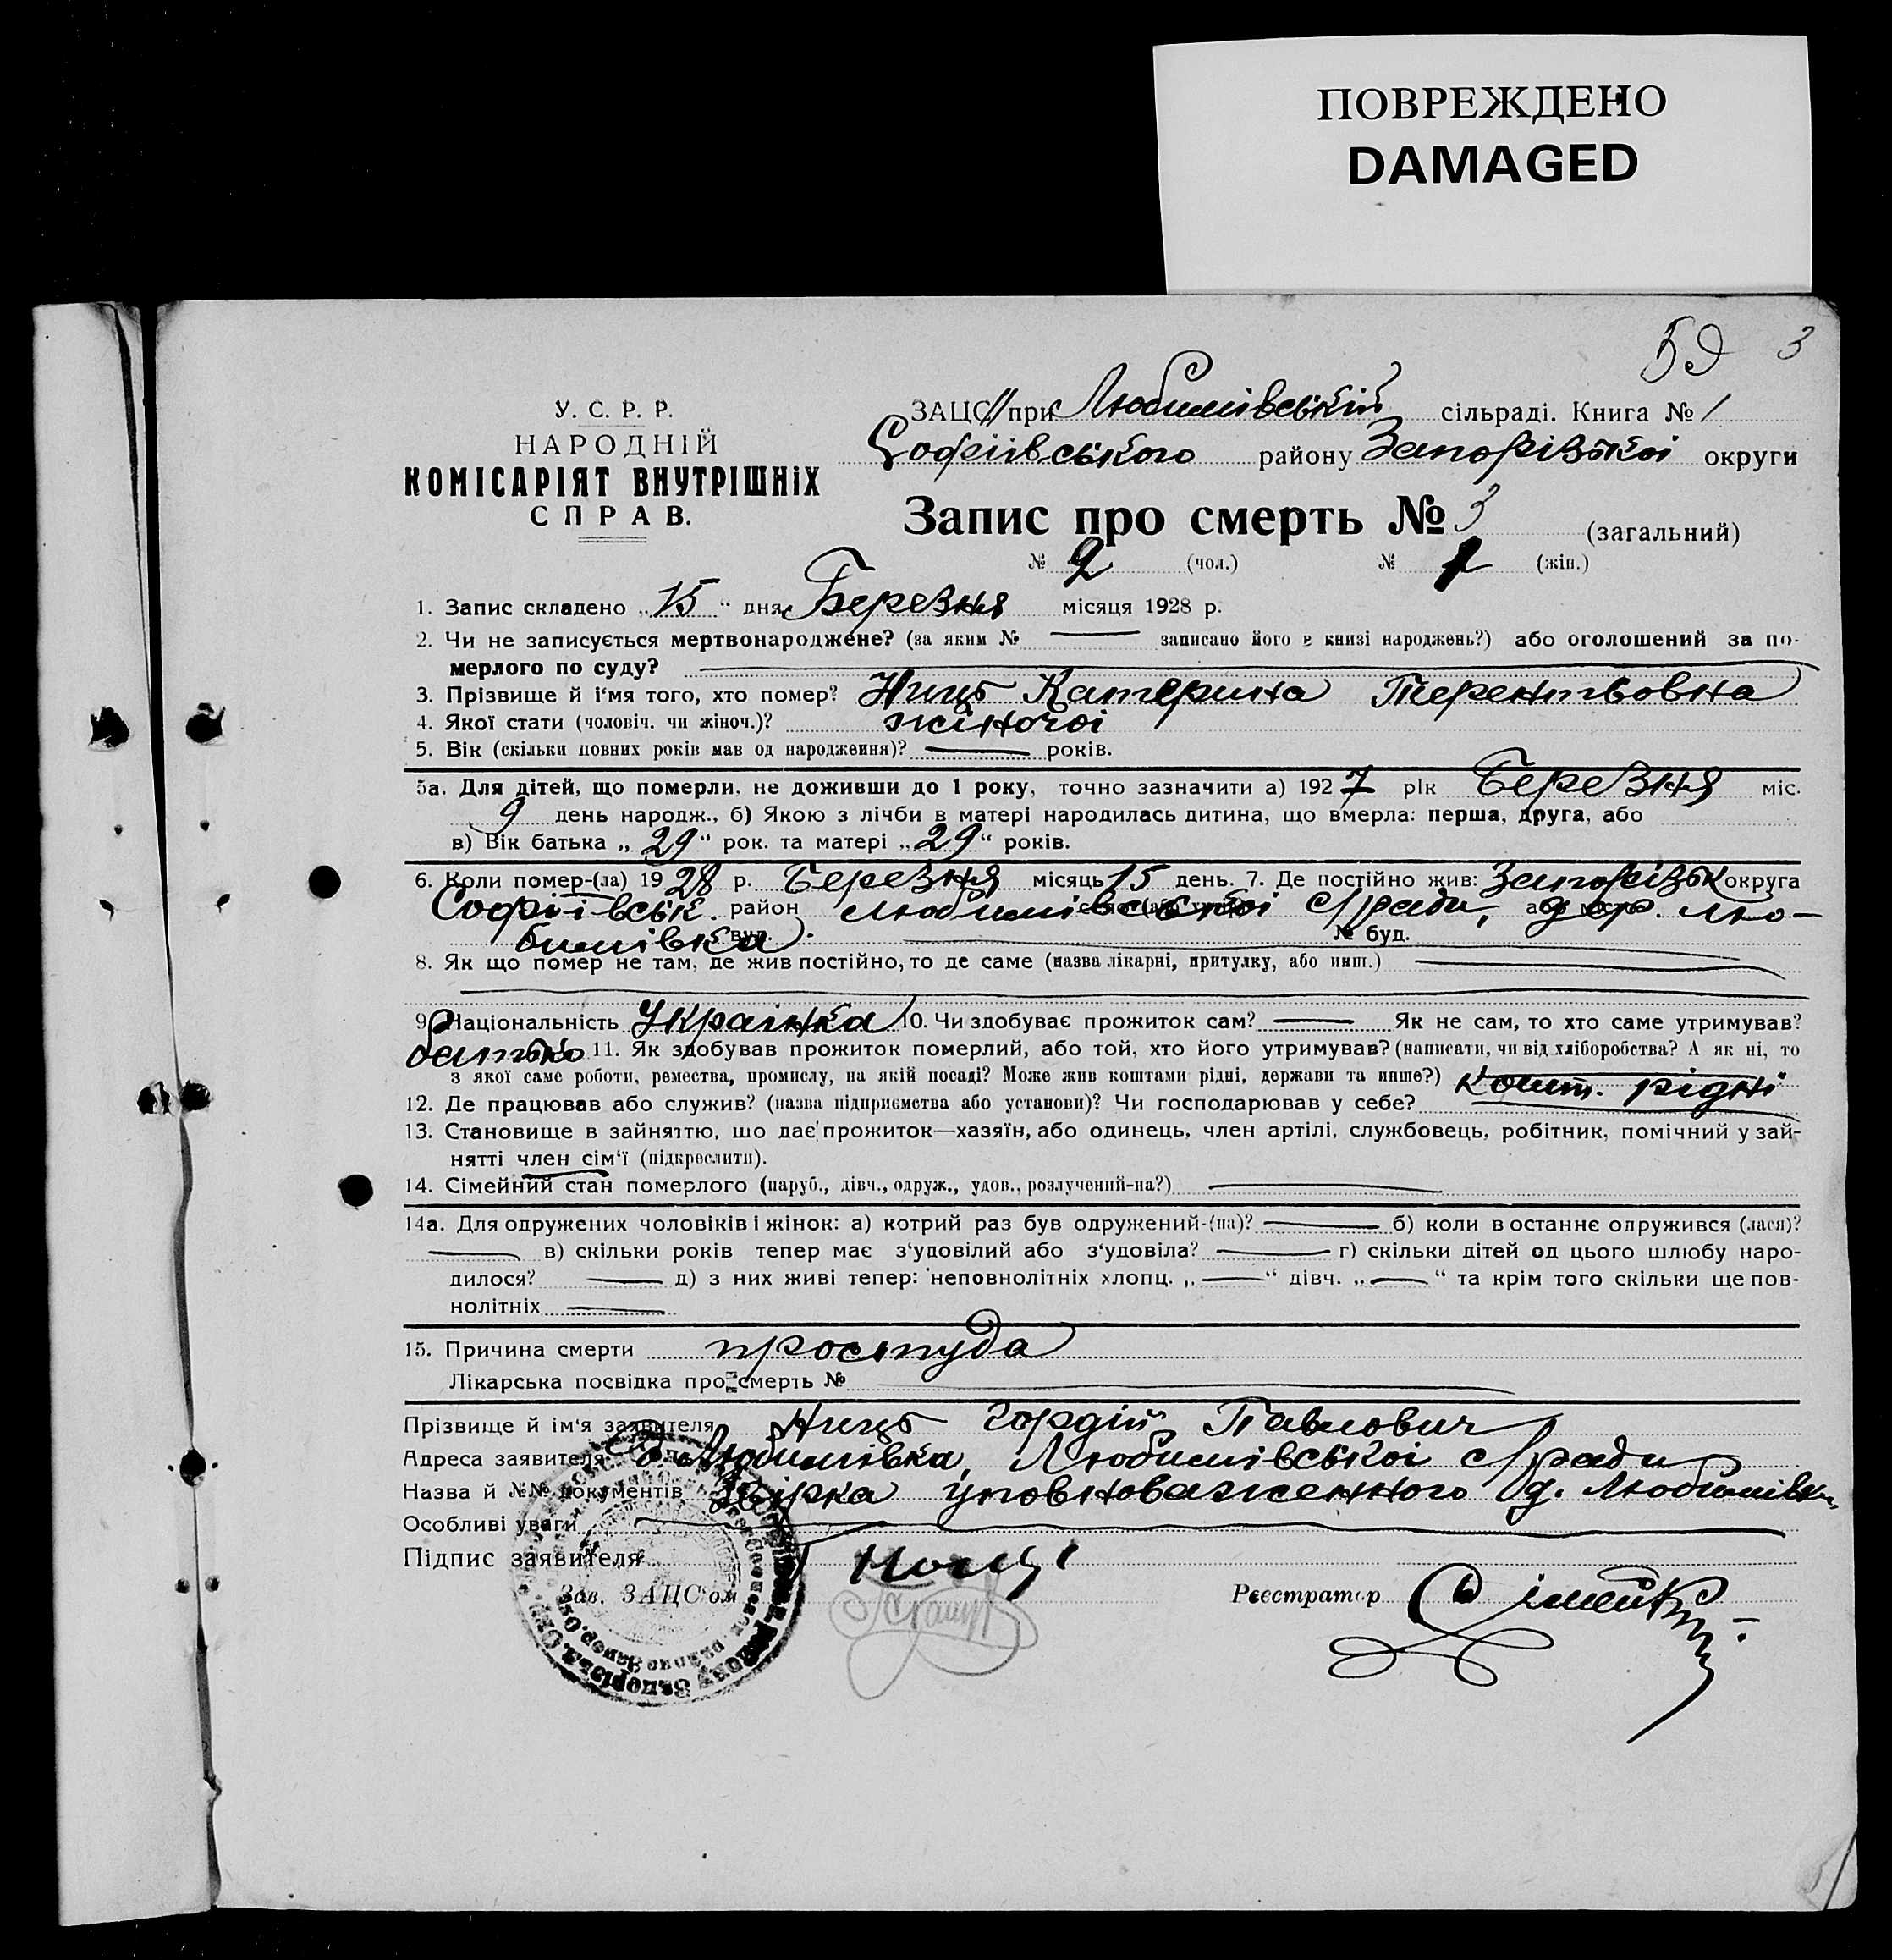 ПОВРЕЖДЕНО
DAMAGED
59 3
У. С. Р. Р.
НАРОДНІЙ
КОМІСАРІЯТ ВНУТРІШНІХ
СПРАВ.
ЗАЦС при Любимівській сільраді. Книга № 1
Софіівського району Запорізькоі округи
Запис про смерть № 3 (загальний)
№ 2 (чол.) № 1 (жін.)
1. Запис складено „15“ дня Березня місяця 1928 р.
2. Чи не записується мертвонароджене? (за яким № — записано його в книзі народжень?) або оголошений за по-
мерлого по суду? —
3. Прізвище й і'мя того, хто помер? Ниць Катерина Терентьовна
4. Якої стати (чоловіч. чи жіноч.)? жіночоі
5. Вік (скільки повних років мав од народження)? — років.
5а. Для дітей, що померли, не доживши до 1 року, точно зазначити а) 1927 рік Березня міс.
9 день народж., б) Якою з лічби в матері народилась дитина, що вмерла: перша, друга, або
в) Вік батька „29“ рок. та матері „29“ років.
6. Коли помер-(ла) 1928 р. Березня місяць 15 день. 7. Де постійно жив: Запорізьк округа
Софіівськ. район Любимівськоі С/ради, дер. Лю-
бимівка вул. — № буд.
8. Як що помер не там, де жив постійно, то де саме (назва лікарні, притулку, або инш.) —
9. Національність Украінка 10. Чи здобуває прожиток сам? — Як не сам, то хто саме утримував?
батько 11. Як здобував прожиток померлий, або той, хто його утримував? (написати, чи від хліборобства? А як ні, то
з якої саме роботи, ремества, промислу, на якій посаді? Може жив коштами рідні, держави та инше?) кошт. рідні
12. Де працював або служив? (назва підприємства або установи)? Чи господарював у себе? —
13. Становище в зайняттю, що дає прожиток—хазяїн, або одинець, член артілі, службовець, робітник, помічний у зай-
нятті член сім'ї (підкреслити).
14. Сімейний стан померлого (паруб., дівч., одруж., удов., розлучений-на?) —
14а. Для одружених чоловіків і жінок: а) котрий раз був одружений-(на)? — б) коли в останнє одружився (лася)?
— в) скільки років тепер має з'удовілий або з'удовіла? — г) скільки дітей од цього шлюбу наро-
дилося? — д) з них живі тепер: неповнолітніх хлопц. „—“ дівч. „—“ та крім того скільки ще пов-
нолітніх —
15. Причина смерти простуда
Лікарська посвідка про смерть № —
Прізвище й ім'я заявителя Ниць Гордій Павлович
Адреса заявителя Любимівка, Любимівськоі с/ради
Назва й №№ документів уповноваженного д. Любимівк
Особливі уваги —
Підпис заявителя
Зав. ЗАЦС'ом Реєстратор